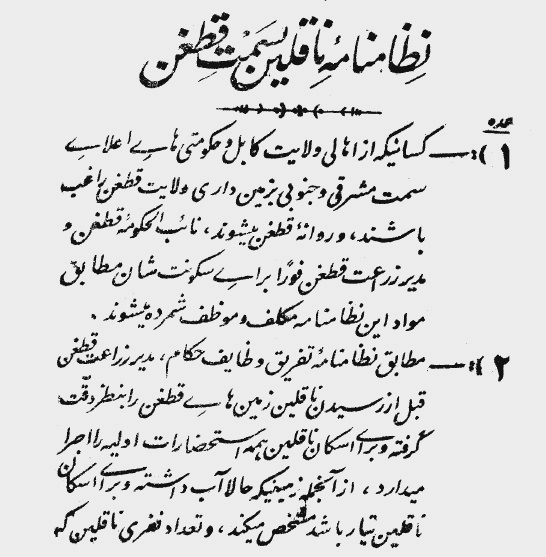 نظامنامهٔ ناقلین بسمت قطغن
عدد
۱) :— کسانیکه از اهالی ولایت کابل و حکومتی هاے اعلاے
سمت مشرقی و جنوبی بزمین داری ولایت قطغن راغب
باشند، و روانهٔ قطغن میشوند، نائب الحکومهٔ قطغن و
مدیر زراعت قطغن فوراً براے سکونت شان مطابق
مواد این نظامنامه مکلف و موظف شمرده میشوند .
۲) :— مطابق نظامنامهٔ تفریق وظایف حکام، مدیر زراعت قطغن
قبل از رسیدن ناقلین زمین هاے قطغن را بنظر دقت
گرفته و براے اسکان ناقلین همه استحضارات اولیه را اجرا
میدارد، از آنجمله زمینیکه حالا آب داشته و براے اسکان
ناقلین تیار باشد مشخص میکند، و تعداد نفری ناقلین که